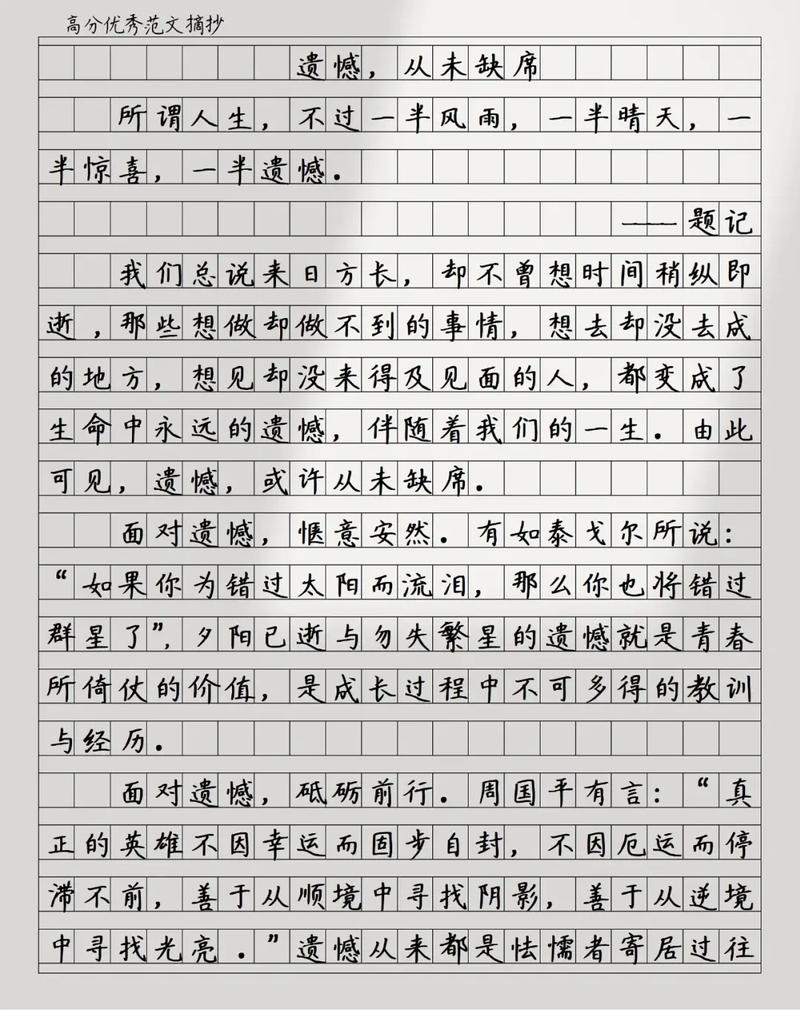 高分优秀范文摘抄
遗憾，从未缺席
所谓人生，不过一半风雨，一半晴天，一
半惊喜，一半遗憾．
——题记
我们总说来日方长，却不曾想时间稍纵即
逝，那些想做却做不到的事情，想去却没去成
的地方，想见却没来得及见面的人，都变成了
生命中永远的遗憾，伴随着我们的一生．由此
可见，遗憾，或许从未缺席．
面对遗憾，惬意安然．有如泰戈尔所说：
“如果你为错过太阳而流泪，那么你也将错过
群星了”，夕阳已逝与勿失繁星的遗憾就是青春
所倚仗的价值，是成长过程中不可多得的教训
与经历．
面对遗憾，砥砺前行．周国平有言：“真
正的英雄不因幸运而固步自封，不因厄运而停
滞不前，善于从顺境中寻找阴影，善于从逆境
中寻找光亮．”遗憾从来都是怯懦者寄居过往